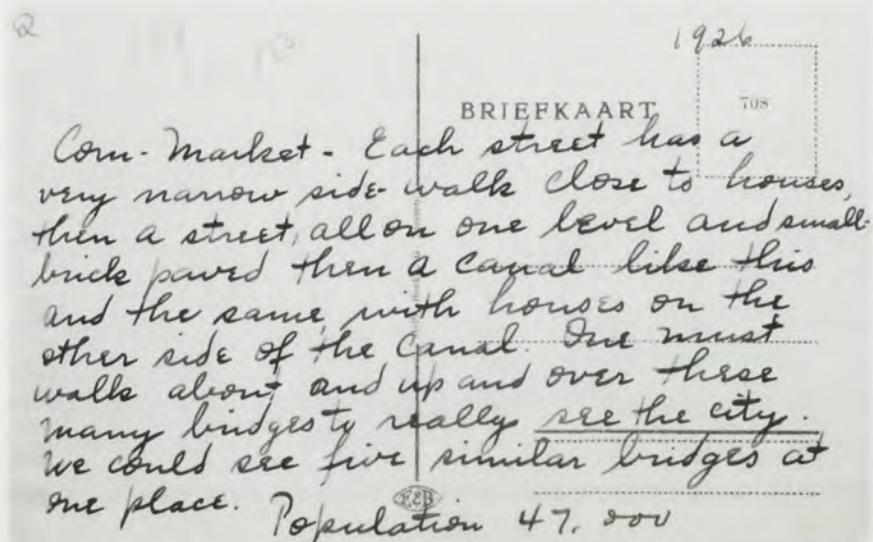 1926
BRIEFKAART
708
Corn-Market - Each street has a
very narrow side-walk close to houses,
then a street, all on one level and small-
brick paved then a canal like this
and the same, with houses on the
other side of the canal. One must
walk about, and up and over these
many bridges to really see the city.
We could see five similar bridges at
one place.
EEB
Population 47,000